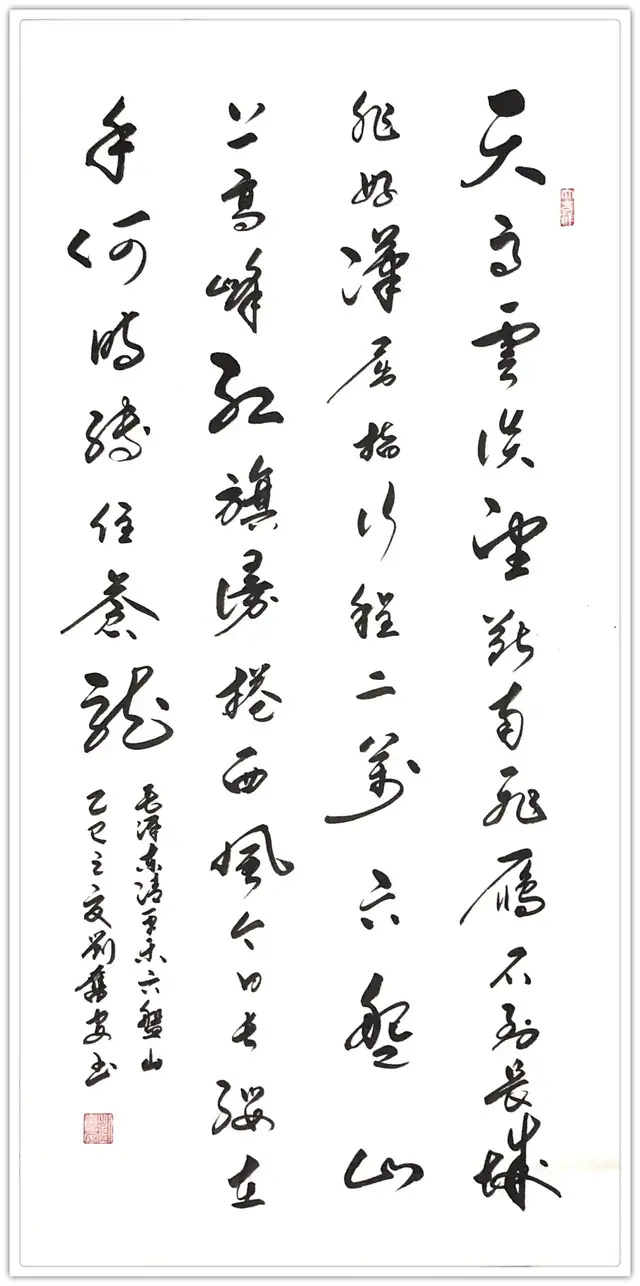 天高雲淡望斷南飛雁不到長城
非好漢屈指行程二萬六盤山
上高峰紅旗漫捲西風今日長纓在
手何時縛住蒼龍
毛澤東清平樂六盤山
乙巳之夏劉奮安书